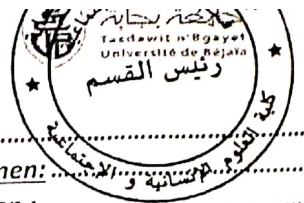 جامعة بجاية
Tasdawit n'Bgayet
Université de Béjaïa
رئيس القسم
كلية العلوم الإنسانية و الاجتماعية
men: